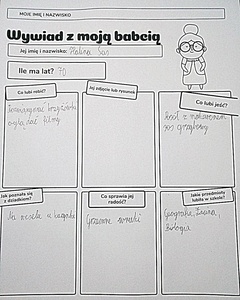 MOJE IMIĘ I NAZWISKO
Wywiad z moją babcią
Jej imię i nazwisko: Halina Sas
Ile ma lat? 70
Co lubi robić?
Rozwiązywać krzyżówki
oglądać filmy
Jej zdjęcie lub rysunek
Co lubi jeść?
Rosół z makaronem
sos grzybowy
Jak poznała się
z dziadkiem?
Na weselu u
Co sprawia jej
radość?
Grzeczne wnuki
Jakie przedmioty
lubiła w szkole?
Geografia,
Biologia